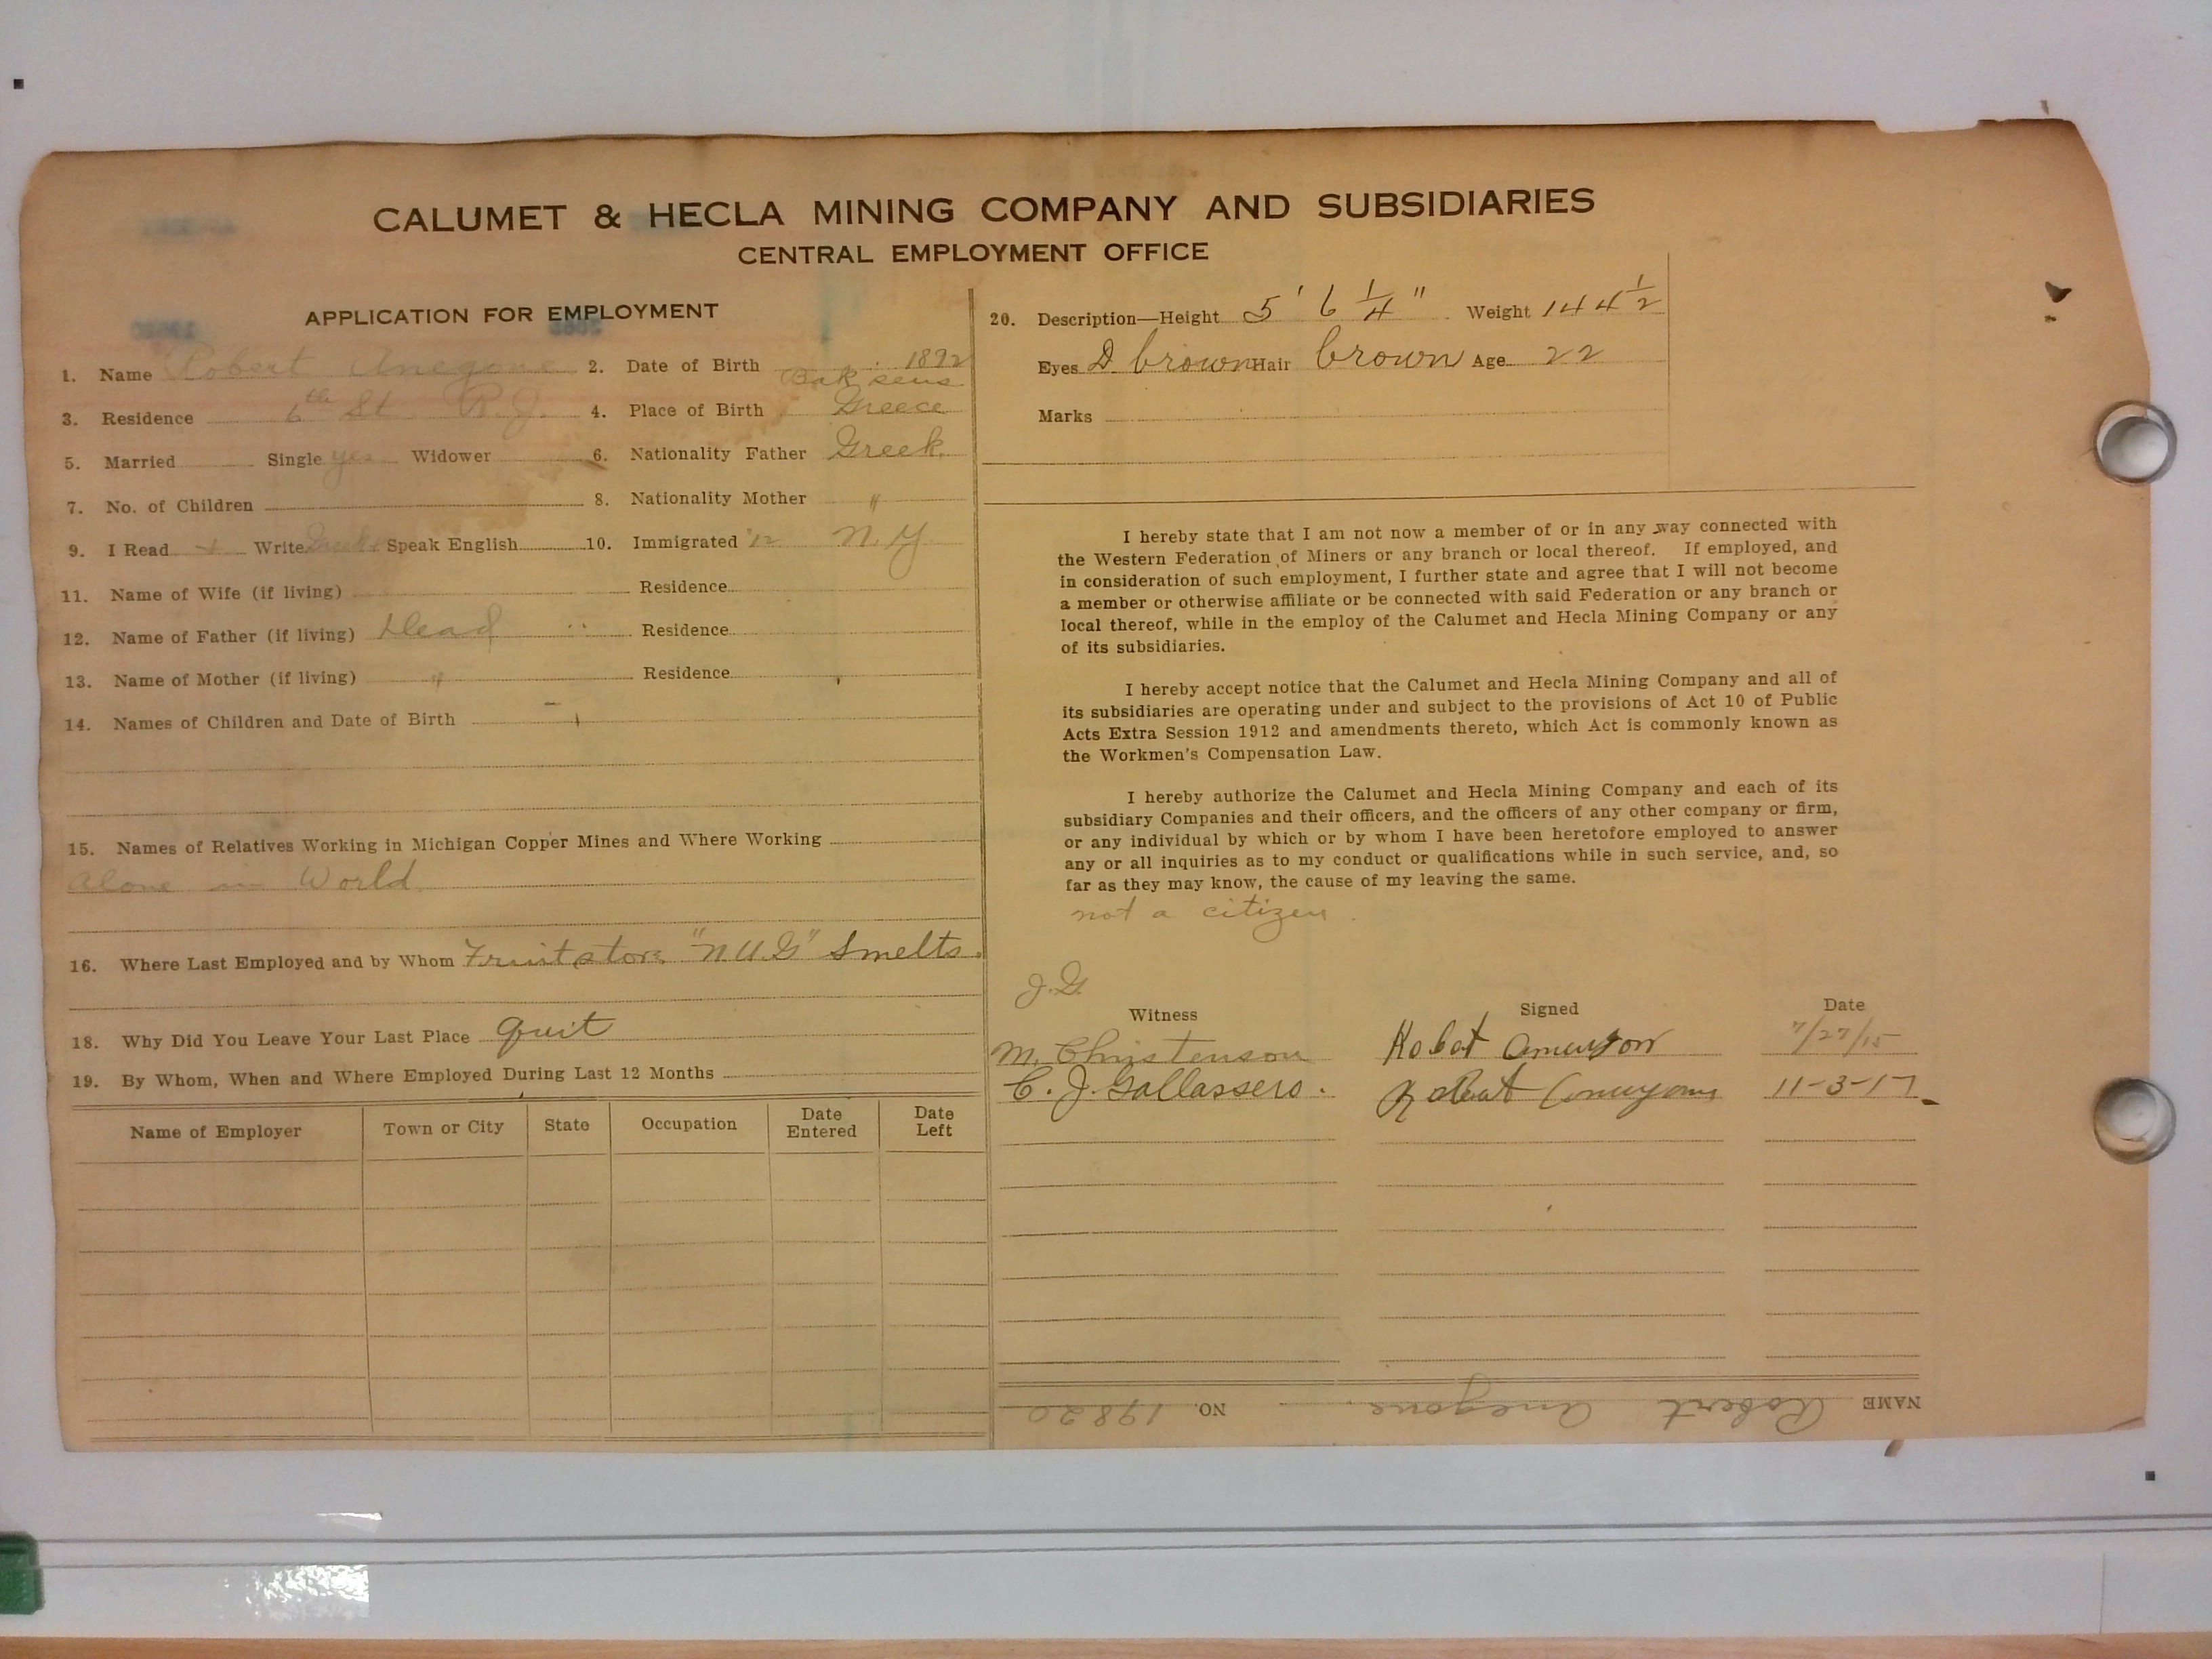 CALUMET & HECLA MINING COMPANY AND SUBSIDIARIES
CENTRAL EMPLOYMENT OFFICE
APPLICATION FOR EMPLOYMENT
1. Name Robert Anegone 2. Date of Birth 1892
3. Residence 6th St. R.J. 4. Place of Birth Greece
5. Married Single yes Widower 6. Nationality Father Greek
7. No. of Children 8. Nationality Mother "
9. I Read + Write Greek Speak English 10. Immigrated '12 N.Y
11. Name of Wife (if living) Residence
12. Name of Father (if living) Dead Residence
13. Name of Mother (if living) " Residence
14. Names of Children and Date of Birth
15. Names of Relatives Working in Michigan Copper Mines and Where Working
alone in World
16. Where Last Employed and by Whom Fruit store "N.U.G" Smelts.
18. Why Did You Leave Your Last Place quit
19. By Whom, When and Where Employed During Last 12 Months
Name of Employer Town or City State Occupation Date Entered Date Left
20. Description—Height 5' 6 1/4" Weight 144 1/2
Eyes D brown Hair brown Age 22
Marks
I hereby state that I am not now a member of or in any way connected with
the Western Federation of Miners or any branch or local thereof. If employed, and
in consideration of such employment, I further state and agree that I will not become
a member or otherwise affiliate or be connected with said Federation or any branch or
local thereof, while in the employ of the Calumet and Hecla Mining Company or any
of its subsidiaries.
I hereby accept notice that the Calumet and Hecla Mining Company and all of
its subsidiaries are operating under and subject to the provisions of Act 10 of Public
Acts Extra Session 1912 and amendments thereto, which Act is commonly known as
the Workmen's Compensation Law.
I hereby authorize the Calumet and Hecla Mining Company and each of its
subsidiary Companies and their officers, and the officers of any other company or firm,
or any individual by which or by whom I have been heretofore employed to answer
any or all inquiries as to my conduct or qualifications while in such service, and, so
far as they may know, the cause of my leaving the same.
not a citizen.
J.G.
Witness Signed Date
M. Christenson 7/27/15
C. J. Gallassero. 11-3-17
NAME Robert Anegone. NO. 19820